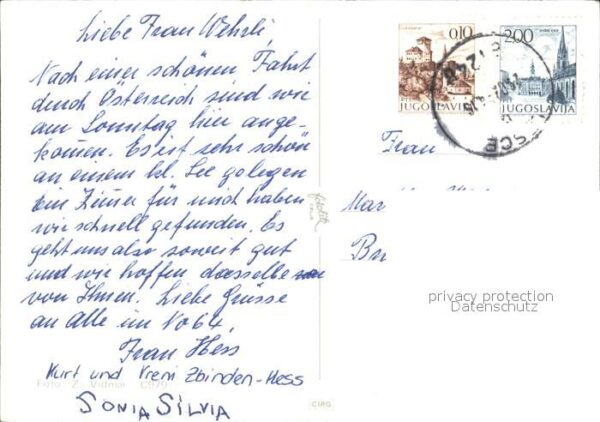 Liebe Frau Wehrli,
Nach einer schönen Fahrt
durch Österreich sind wir
am Sonntag hier ange-
kommen. Es ist sehr schön
an einem kl. See gelegen
ein Zimmer für mich haben
wir schnell gefunden. Es
geht uns also soweit gut
und wir hoffen dasselbe
von Ihnen. Liebe Grüsse
an Alle im No 64.
Frau Hess
Kurt und Vreni Zbinden-Hess
SONIA SILVIA
Foto: Z. Vidmar C979
0.10
JUGOSLAVIJA
2.00
JUGOSLAVIJA
Frau
Mar
Br
privacy protection
Datenschutz